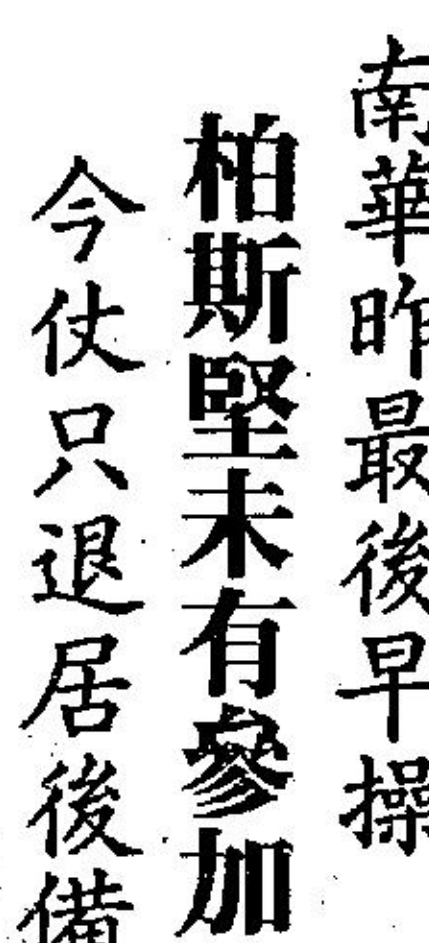 南華昨最後早操
柏斯堅未有參加
今仗只退居後備